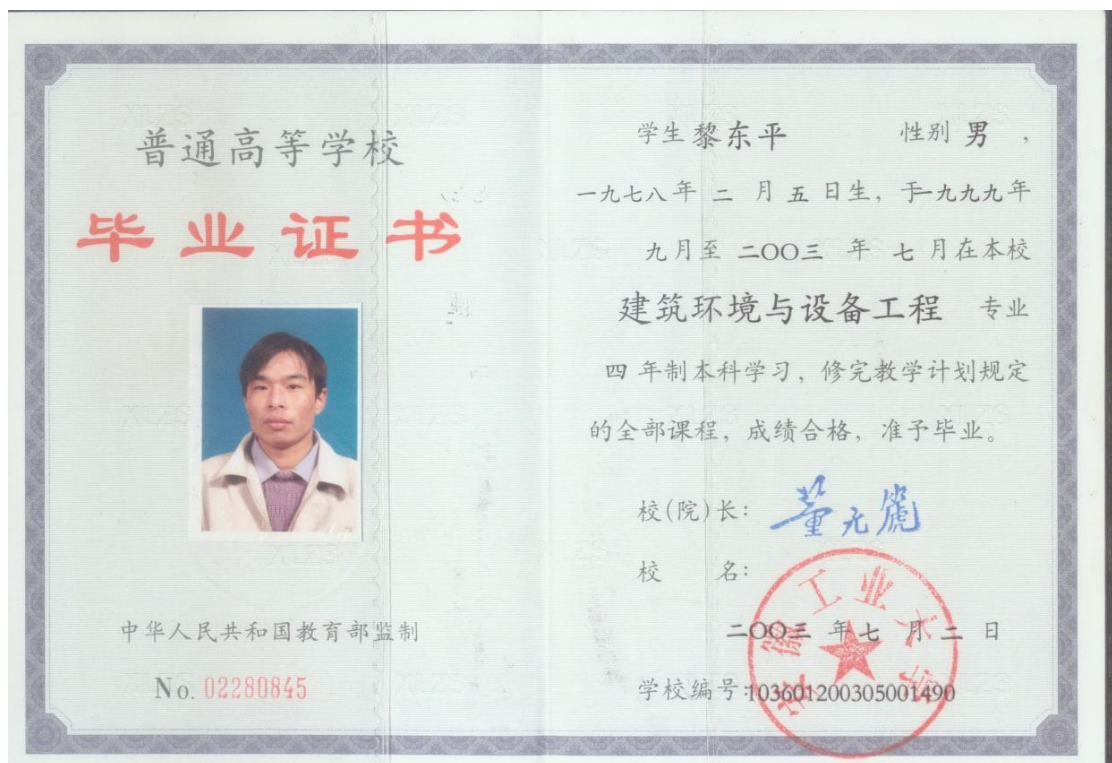 普通高等学校
毕业证书
中华人民共和国教育部监制
No. 02280845
学生 黎东平 性别 男 ,
一九七八年 二 月 五 日生, 于一九九九年
九月至 二〇〇三 年 七 月在本校
建筑环境与设备工程 专业
四 年制本科学习, 修完教学计划规定
的全部课程, 成绩合格, 准予毕业。
校(院)长: 董元篪
校 名:
安徽工业大学
二〇〇三 年 七 月 二 日
学校编号:103601200305001490